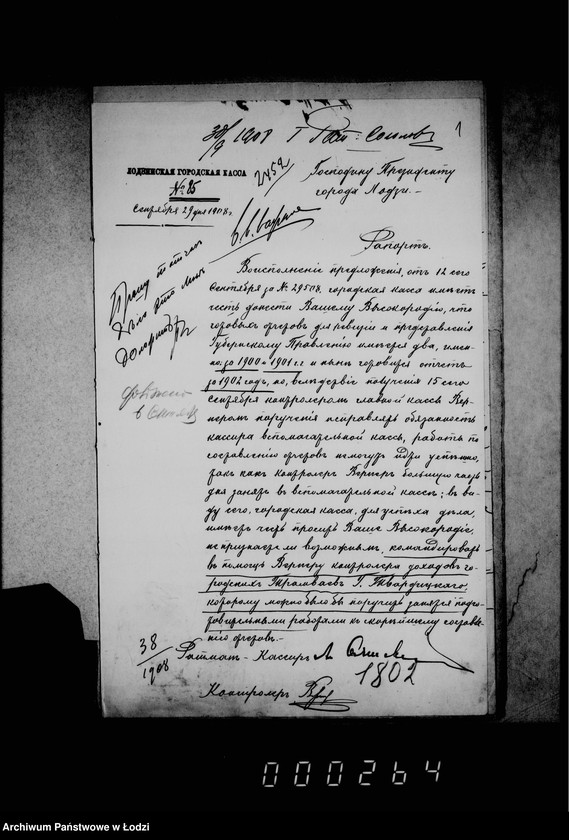 30/9 1908 г
1
ЛОДЗИНСКАЯ ГОРОДСКАЯ КАССА
№ 85
Сентября 29 дня 1908 г.
2452
Господину Президенту
города Лодзи.-
Рапортъ.
Во исполненіе предложенія, отъ 12 сего
Сентября за № 29508, городская касса имѣетъ
честь донести Вашему Высокородію, что
готовыхъ отчетовъ для ревизіи и представленія
Губернскому Правленію имѣется два, имен-
но: за 1900 и 1901 г.г. и нынѣ готовится отчетъ
за 1902 годъ, но, вслѣдствіе полученія 15 сего
Сентября контролеромъ главной кассы Вер-
неромъ порученія исправлять обязанность
кассира вспомагательной кассы, работы по
составленію отчетовъ не могутъ идти успѣшно,
такъ какъ контролеръ Вернеръ большую часть
дня занятъ въ вспомагательной кассѣ; въ ви-
ду сего, городская касса, для успѣха дѣла,
имѣетъ честь просить Ваше Высокородіе,
не признаете ли возможнымъ, командировать
въ помощь Вернеру контролера доходовъ го-
родскихъ Трамваевъ Г. Твардицкаго,
которому можно было бы поручить занятія подго-
товительными работами къ скорѣйшему составле-
нію отчетовъ.-
38/1908
Ратманъ-Кассиръ
1802
Контролеръ
000264
Archiwum Państwowe w Łodzi